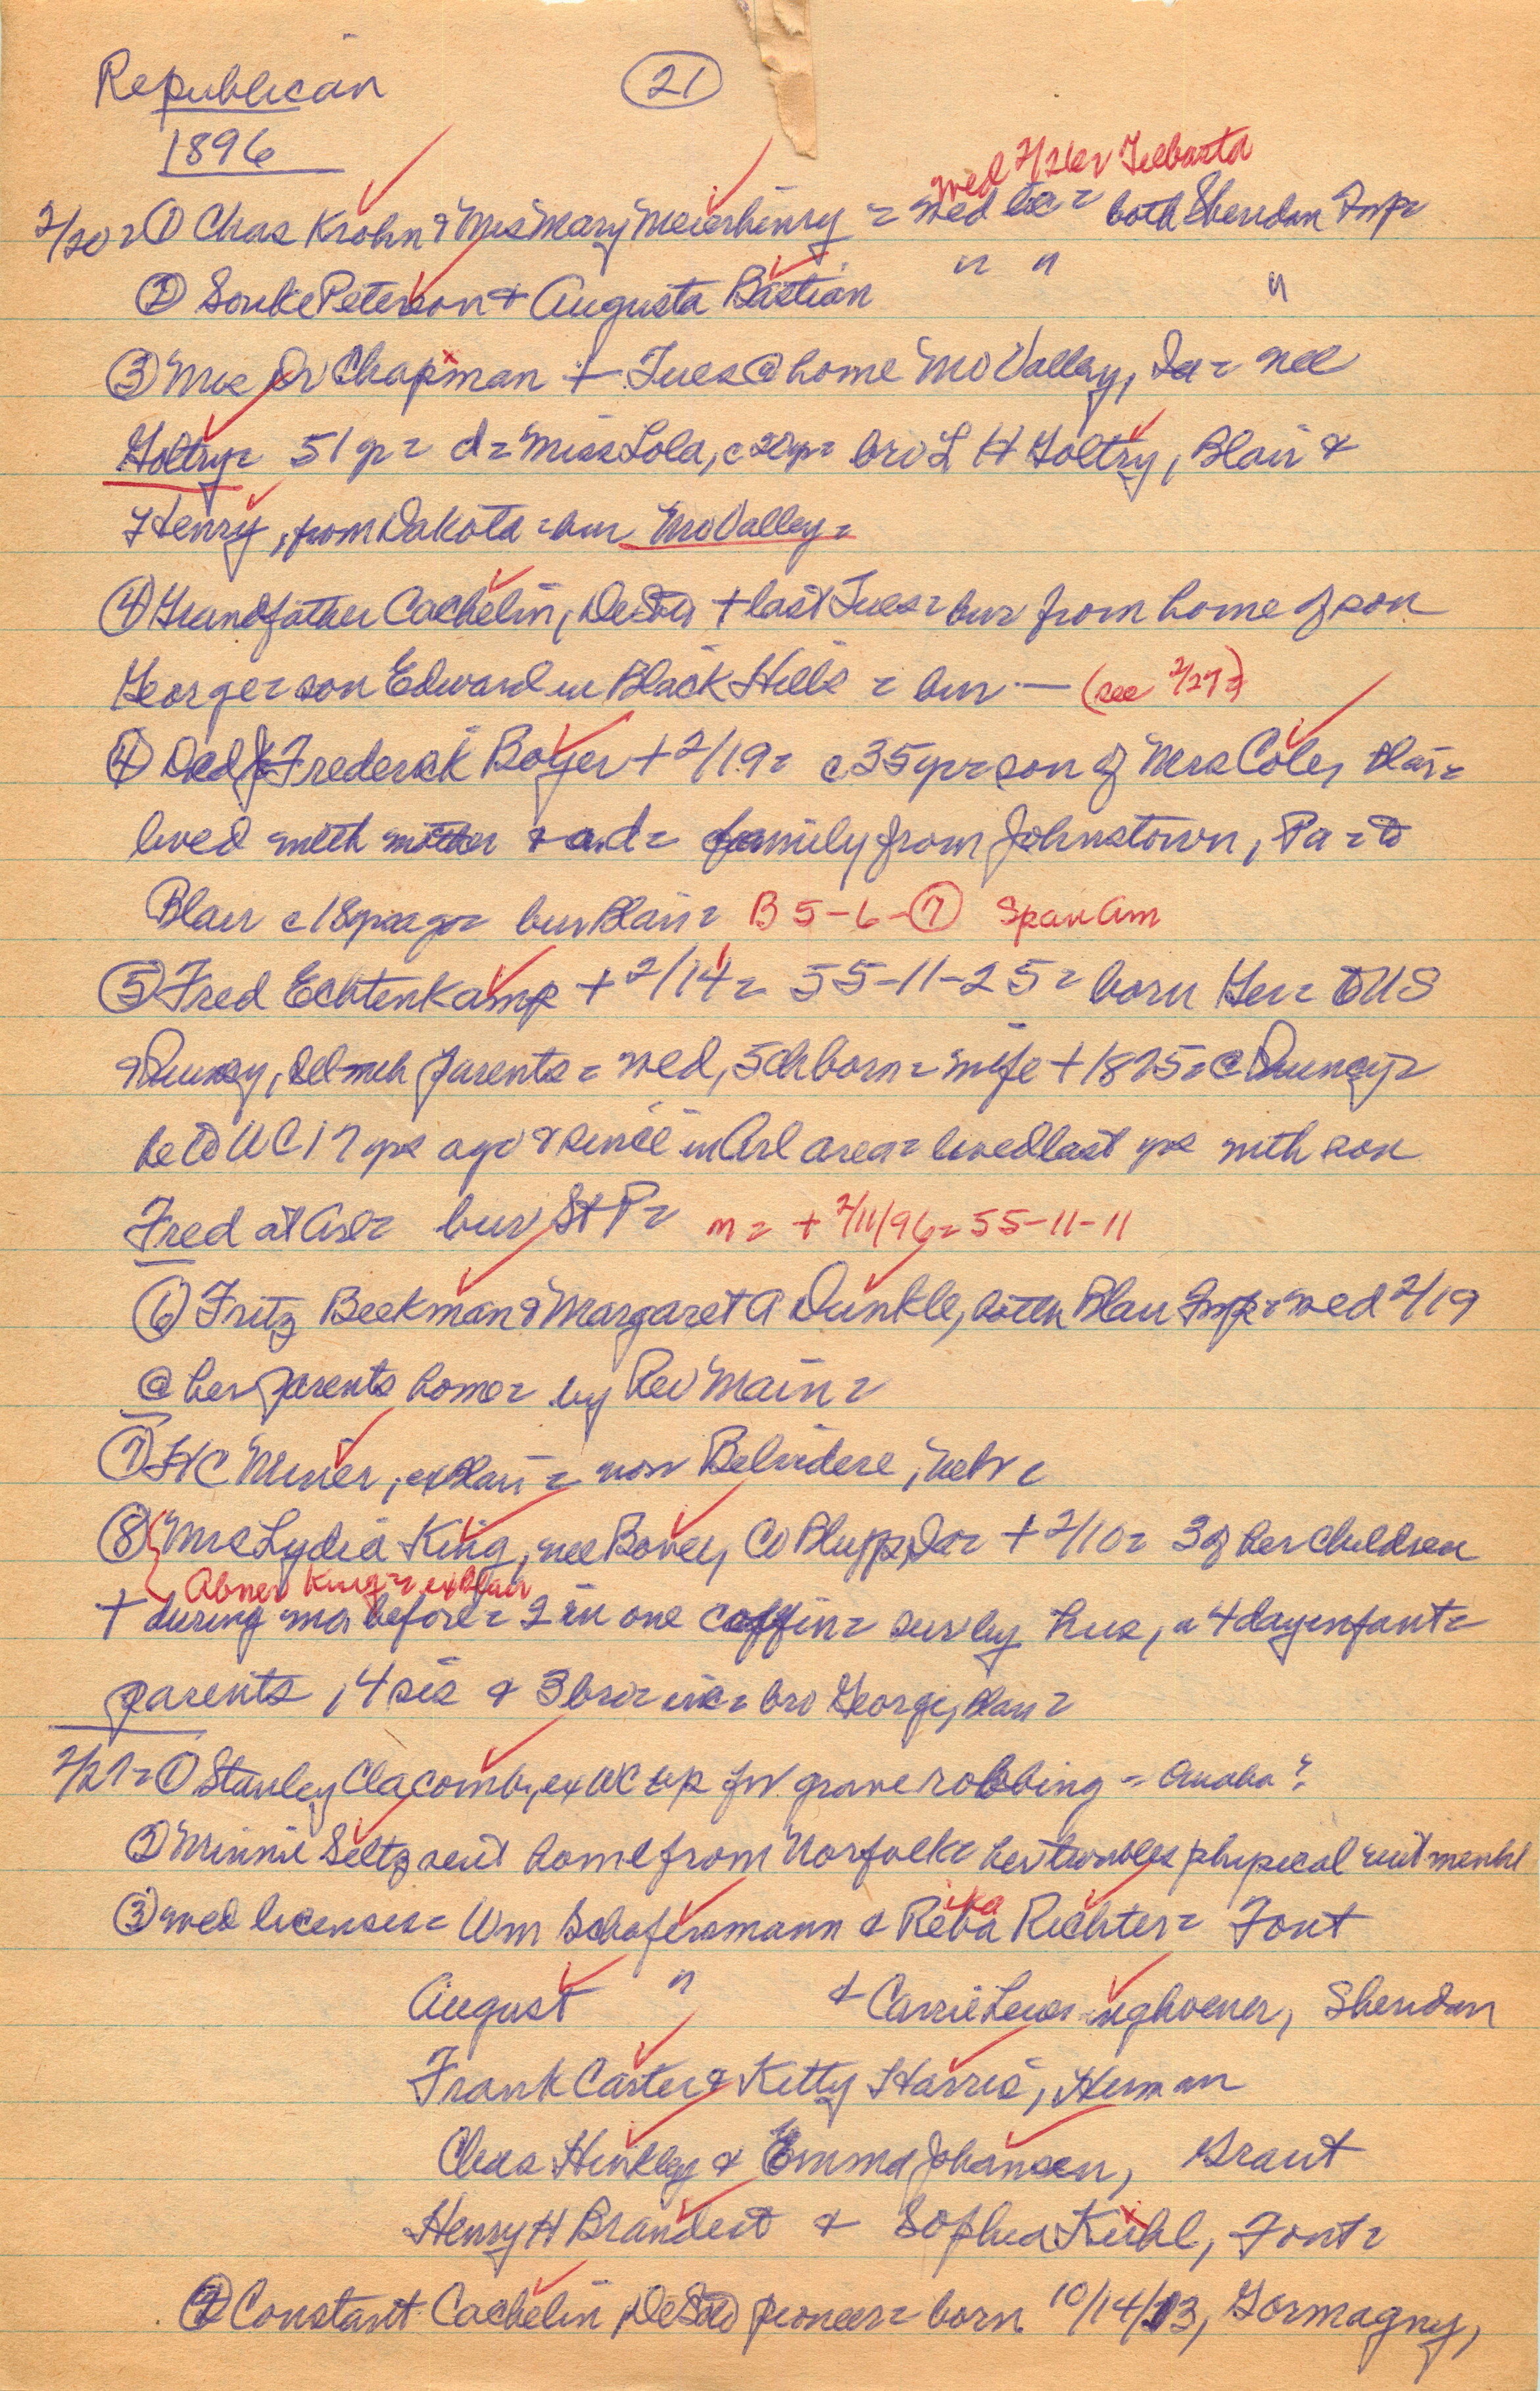 Republican (21)
1896
wed 2/26 by Tiebasta
2/20 = (1) Chas Krohn & Miss Mary Meierhenry = wed lic = both Sheridan Twp =
(2) Sonke Peterson & Augusta Bastian " " "
(3) Mrs Dr Chapman + Tues @ home Mo Valley, Ia = nee
Holtry = 51 yr = d = Miss Lola, c 20 yr = bro L H Holtry, Blair &
Henry, from Dakota = bur Mo Valley =
(4) Grandfather Cachelin, DeSoto + last Tues = bur from home of son
George = son Edward in Black Hills = bur — (see 2/27 =)
(4) Ded Frederick Boyer + 2/19 = c 35 yr = son of Mrs Cole, Blair =
lived with mother & a.d = family from Johnstown, Pa = to
Blair c 18 yrs ago = bur Blair = B 5-6-(7) Span Am
(5) Fred Echtenkamp + 2/14 = 55-11-25 = born Ger = to US
& Quincy, Ill with parents = wed, 5 ch born = wife + 1875 = @ Quincy =
he to WC 17 yrs ago & since in Arl area = lived last yrs with son
Fred at Arl = bur St P = m = + 2/11/96 = 55-11-11
(6) Fritz Beekman & Margaret A Dunkle, both Blair Twp = wed 2/19
@ her parents home = by Rev Main =
(7) H C Miner, ex Blair = now Belvidere, Nebr =
(8) Mrs Lydia King, nee Bovey, Co Bluffs, Ia = + 2/10 = 3 of her children
Abner King = ex Blair
+ during mo before = 2 in one coffin = surv by hus, a 4 day infant =
parents, 4 sis & 3 bro = inc = bro George, Blair =
2/27 = (1) Stanley Clacomb, ex WC up for grave robbing = Omaha?
(2) Minnie Seltz sent home from Norfolk = her troubles physical not mental
(3) wed licenses = Wm Schafersmann & Reba Richter = Font
ika
August " & Carrie Leweninghoener, Sheridan
Frank Carter & Kitty Harris, Herman
Chas Hinkley & Emma Johansen, Grant
Henry H Brandert & Sophia Kuhl, Font =
(4) Constant Cachelin, DeSoto pioneer = born 10/14/13, Gormagny,